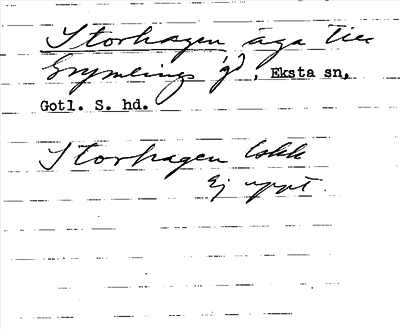 Storhagen äga till
Snymlings gd, Eksta sn,
Gotl. S. hd.
Storhagen Iskk
Ej uppt.